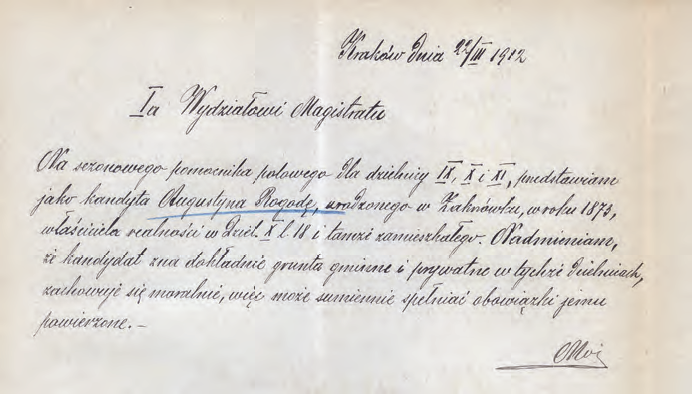 Kraków dnia 22/III 1912
Ia Wydziałowi Magistratu
Na sezonowego pomocnika polowego dla dzielnicy IX, X i XI, przedstawiam
jako kandyta Augustyna Rogodę, urodzonego w Zakrzówku, w roku 1873,
właściciela realności w Dziel. X l. 18 i tamże zamieszkałego. Nadmieniam,
że kandydat zna dokładnie grunta gminne i prywatne w tychże dzielnicach,
zachowuje się moralnie, więc może sumiennie spełniać obowiązki jemu
powierzone. –